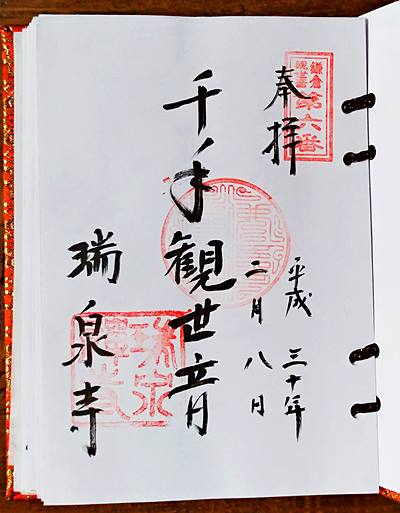 奉拝
鎌倉
観世音
第六番
平成三十年
二月八日
千手観世音
瑞泉寺